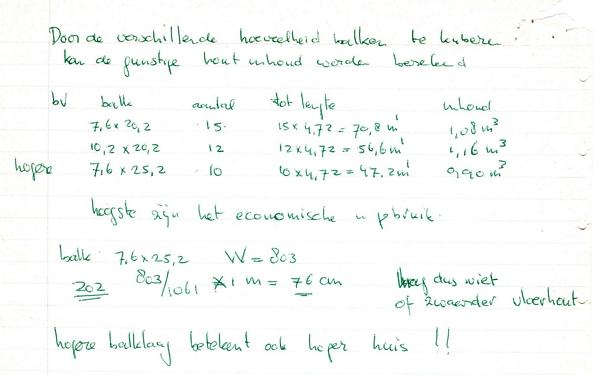 Door de verschillende hoeveelheid balken te kubere
kan de gunstige hout inhoud worden berekend
bv balk aantal tot lengte inhoud
7,6 x 20,2 15 15 x 4,72 = 70,8 m¹ 1,08 m³
10,2 x 20,2 12 12 x 4,72 = 56,6 m¹ 1,16 m³
hogere 7,6 x 25,2 10 10 x 4,72 = 47,2 m¹ 0,90 m³
hoogste zijn het economische in gebruik.
balk 7,6 x 25,2 W = 803
202 803/1061 x 1 m = 76 cm dus niet
of zwaarder vloerhout
hogere balklaag betekent ook hoger huis !!